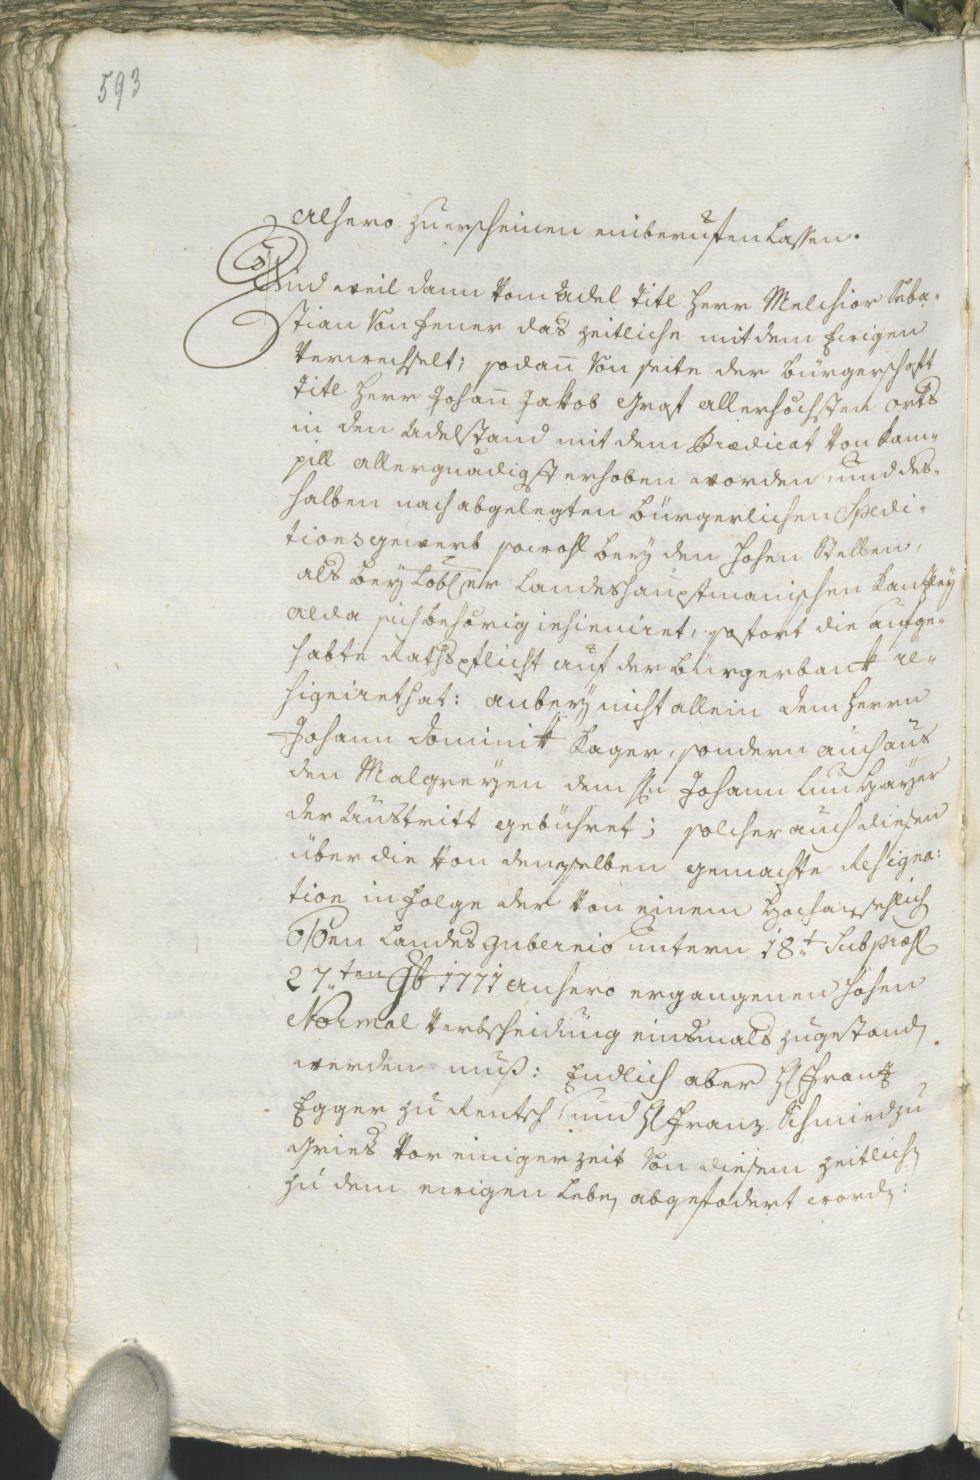 593
Alhero zu erscheinen einberuffen lassen.
Und weil dann vom Adel Titl Herr Melchior Seba-
stian von Hener das Zeitliche mit dem Ewigen
verwechselt; sodan̄ von seite der Bürgerschaft
Titl Herr Johan̄ Jakob Graf allerhöchsten orts
in den Adelstand mit dem Prædicat von Kam-
pill allergnädigst erhoben worden, und des-
halben nach abgelegten bürgerlichen Spedi-
tionsgewerb sowohl bey den hohen Stellen,
als bey Löbler Landeshauptmanischen Kanzley
alda sich behörig, sofort die aufge-
habte Rathspflicht auf der Bürgerbank re-
signiret hat: anbey nicht allein dem Herrn
Johann Dominik Kager, sondern auch aus
den Malgreyen dem Hn Johann
der Austritt gebühret; solcher auch diesen
über die von denselben gemachte Resigna:
tion in folge der von einem Hochansehlich
Oen Landes Gubernio untern 18t Sub præs
27ten 1771 anhero ergangenen hohen
Normal Verbscheidung einsmals zugestand
werden muß: Endlich aber H Frantz
Egger zu Rentsch und H Franz Schmied zu
Gries vor einiger zeit von diesem zeitlich
zu dem ewigen Leben abgefodert word: